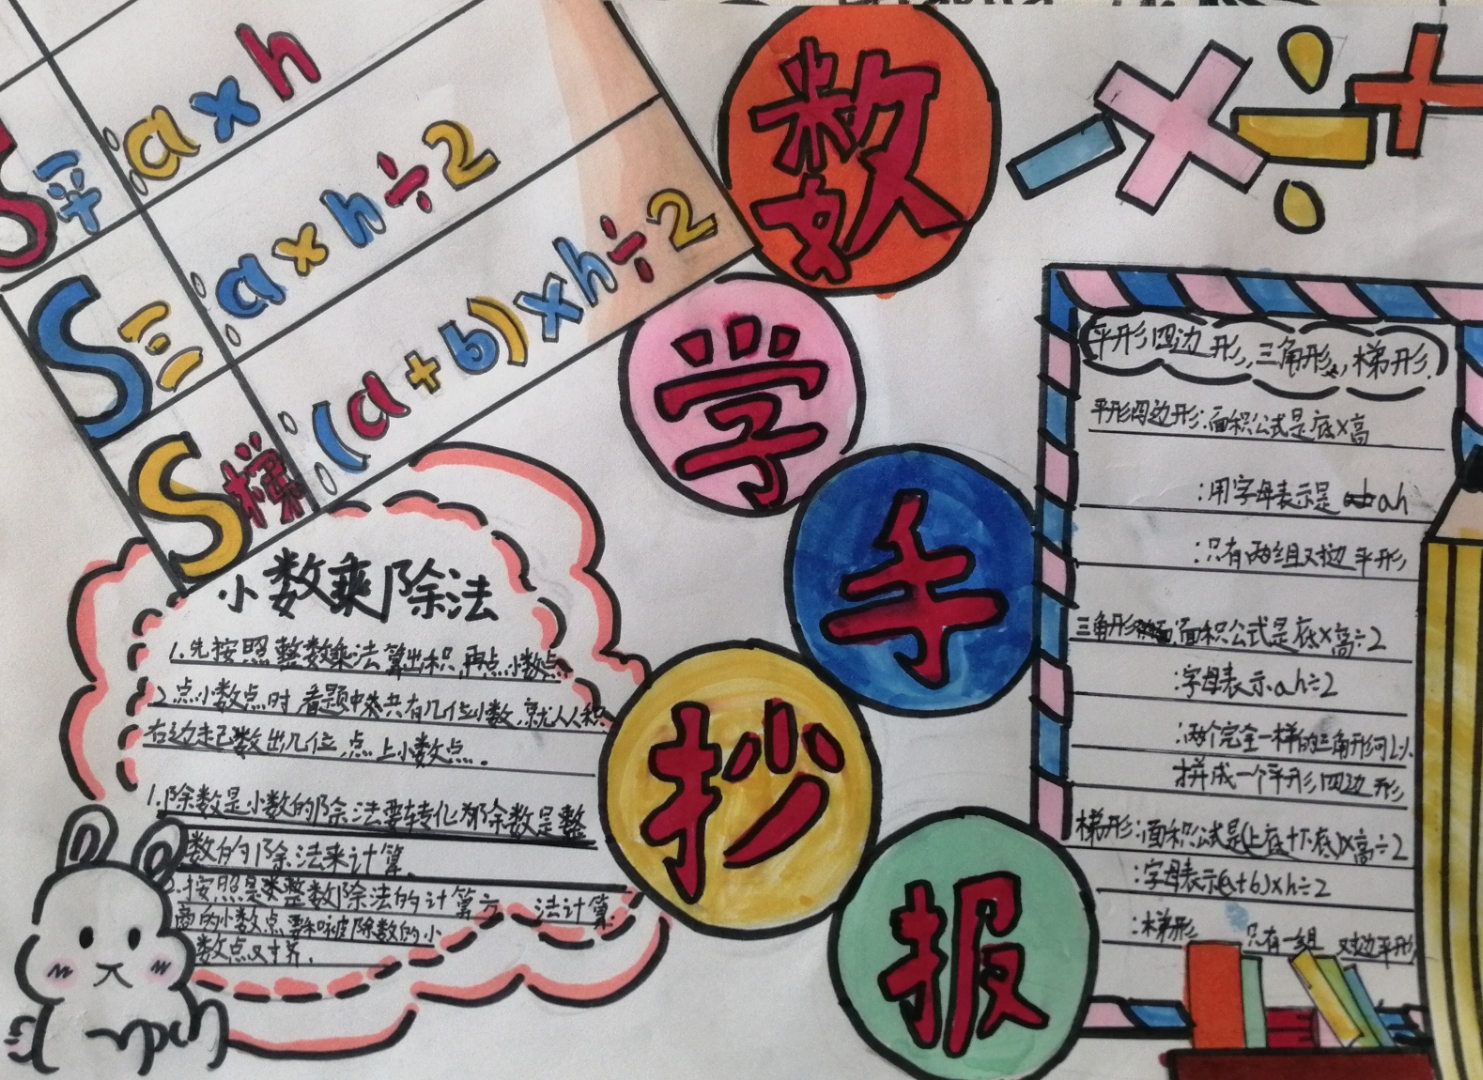 数
学
手
抄
报
S平:a×h
S三:a×h÷2
S梯:(a+b)×h÷2
小数乘除法
1.先按照整数乘法算出积,再点小数点
2.点小数点时,看题中共有几位小数,就从积
右边起数出几位,点上小数点。
1.除数是小数的除法要转化为除数是整
数的除法来计算.
2.按照整数除法的计算方法计算
商的小数点要和被除数的小
数点对齐.
平形四边形,三角形,梯形.
平形四边形:面积公式是底×高
:用字母表示是ah
:只有两组对边平形
三角形:面积公式是底×高÷2
:字母表示ah÷2
:两个完全一样的三角形可以
拼成一个平形四边形
梯形:面积公式是(上底+下底)×高÷2
:字母表示(a+b)×h÷2
:梯形只有一组对边平形